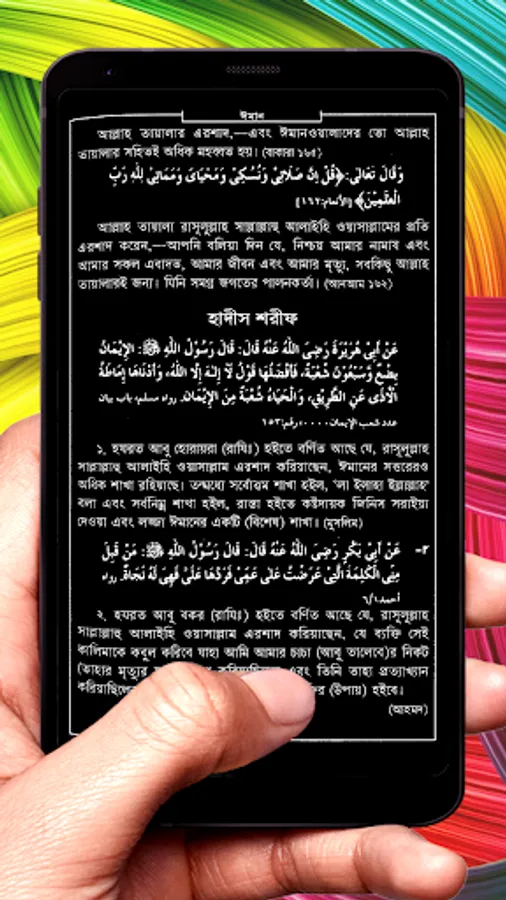 ঈমান
আল্লাহ তায়ালার এরশাদ,—এবং ঈমানওয়ালাদের তো আল্লাহ
তায়ালার সহিতই অধিক মহব্বত হয়। (বাকারা ১৬৫)
وَقَالَ تَعَالٰى: ﴿قُلْ اِنَّ صَلَاتِىْ وَنُسُكِىْ وَمَحْيَاىَ وَمَمَاتِىْ لِلّٰهِ رَبِّ
الْعٰلَمِيْنَ﴾ [الأنعام:١٦٢]
আল্লাহ তায়ালা রাসূলুল্লাহ সাল্লাল্লাহু আলাইহি ওয়াসাল্লামের প্রতি
এরশাদ করেন,—আপনি বলিয়া দিন যে, নিশ্চয় আমার নামায এবং
আমার সকল এবাদত, আমার জীবন এবং আমার মৃত্যু, সবকিছু আল্লাহ
তায়ালারই জন্য। যিনি সমগ্র জগতের পালনকর্তা। (আনআম ১৬২)
হাদীস শরীফ
عَنْ اَبِىْ هُرَيْرَةَ رَضِىَ اللّٰهُ عَنْهُ قَالَ: قَالَ رَسُوْلُ اللّٰهِ ﷺ: الْاِيْمَانُ
بِضْعٌ وَسَبْعُوْنَ شُعْبَةً، فَاَفْضَلُهَا قَوْلُ لَا اِلٰهَ اِلَّا اللّٰهُ، وَاَدْنَاهَا اِمَاطَةُ
الْاَذٰى عَنِ الطَّرِيْقِ، وَالْحَيَاءُ شُعْبَةٌ مِنَ الْاِيْمَانِ. رواه مسلم، باب بيان
عدد شعب الإيمان....، رقم:١٥٣
১. হযরত আবু হোরায়রা (রাযিঃ) হইতে বর্ণিত আছে যে, রাসূলুল্লাহ
সাল্লাল্লাহু আলাইহি ওয়াসাল্লাম এরশাদ করিয়াছেন, ঈমানের সত্তরেরও
অধিক শাখা রহিয়াছে। তন্মধ্যে সর্বোত্তম শাখা হইল, 'লা ইলাহা ইল্লাল্লাহ'
বলা এবং সর্বনিম্ন শাখা হইল, রাস্তা হইতে কষ্টদায়ক জিনিস সরাইয়া
দেওয়া এবং লজ্জা ঈমানের একটি (বিশেষ) শাখা। (মুসলিম)
٢- عَنْ اَبِىْ بَكْرٍ رَضِىَ اللّٰهُ عَنْهُ قَالَ: قَالَ رَسُوْلُ اللّٰهِ ﷺ: مَنْ قَبِلَ
مِنِّى الْكَلِمَةَ الَّتِىْ عَرَضْتُ عَلٰى عَمِّىْ فَرَدَّهَا عَلَىَّ فَهِىَ لَهُ نَجَاةٌ. رواه
أحمد١/٦
২. হযরত আবু বকর (রাযিঃ) হইতে বর্ণিত আছে যে, রাসূলুল্লাহ
সাল্লাল্লাহু আলাইহি ওয়াসাল্লাম এরশাদ করিয়াছেন, যে ব্যক্তি সেই
কালিমাকে কবুল করিবে যাহা আমি আমার চাচা (আবু তালেবে)র নিকট
(তাহার মৃত্যুর এবং তিনি তাহা প্রত্যাখ্যান
করিয়াছিলেন (উপায়) হইবে।
(আহমদ)